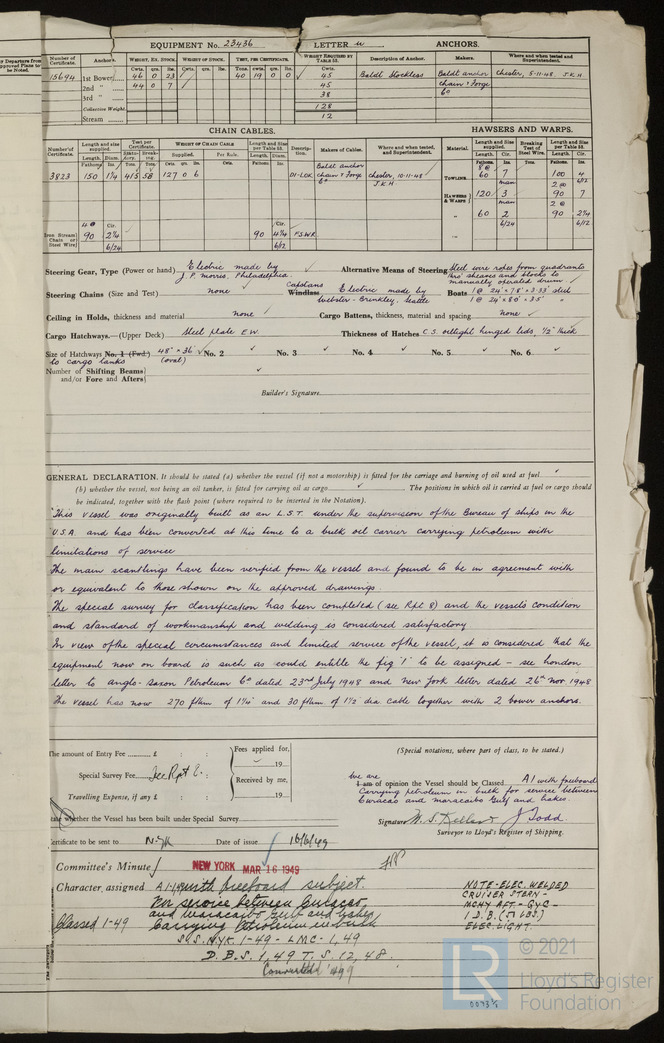 EQUIPMENT No. 23436 LETTER u ANCHORS.
Number of Certificate. Anchors. WEIGHT, EX. STOCK. WEIGHT OF STOCK. TEST, PER CERTIFICATE. WEIGHT REQUIRED BY TABLE 53. Description of Anchor. Makers. Where and when tested and Superintendent.
Cwts. qrs. lbs. Cwts. qrs. lbs. Tons. cwts. qrs. lbs. Cwts.
15694 1st Bower 46 0 23 40 19 0 0 45 Baldt Stockless Baldt anchor Chester, 5-11-48. J.K.H
2nd " 44 0 7 45 chain & Forge
3rd " 38 Co
Collective Weight 128
Stream 12
CHAIN CABLES. HAWSERS AND WARPS.
Number of Certificate. Length and size supplied. Test per Certificate. WEIGHT OF CHAIN CABLE Length and size per Table 53. Description. Makers of Cables. Where and when tested, and Superintendent. Material. Length and size supplied. Breaking Test of Steel Wire. Length and size per Table 53.
Length. Diam. Supplied. Per Rule. Length. Diam. Length. Cir. Length. Cir.
Fathoms Ins. Tons. Tons. Cwts. qrs. lbs. Cwts. Fathoms. Ins. Fathoms. Ins. Tons. Fathoms. Ins.
3823 150 1¼ 127 0 6 DI-LOK Baldt anchor chain & Forge Co Chester, 10-11-48 J.K.H TOWLINE 60 7 100 4
HAWSERS & WARPS 120 3 90 7
" 60 2 90 2¼
Iron Stream Chain or Steel Wire 90 2¼ 90 4¼ F.S.W.R.
Steering Gear, Type (Power or hand) Electric made by J.P. Morris, Philadelphia. Alternative Means of Steering Steel wire ropes from quadrants thro' sheaves and blocks to manually operated drum
Steering Chains (Size and Test) none Capstans Windlass Electric made by Webster-Brinkley, Seattle Boats 1 @ 24' × 7.8' × 3.33' steel
1 @ 24' × 8.0' × 3.5' "
Ceiling in Holds, thickness and material none Cargo Battens, thickness, material and spacing none
Cargo Hatchways.—(Upper Deck) Steel plate E.W. Thickness of Hatches C.S. oiltight hinged lids, ½" thick
Size of Hatchways No. 1 (Fwd.) 48" × 36" (oval) No. 2 No. 3 No. 4 No. 5 No. 6
to cargo tanks
Number of Shifting Beams
and/or Fore and Afters
Builder's Signature
GENERAL DECLARATION. It should be stated (a) whether the vessel (if not a motorship) is fitted for the carriage and burning of oil used as fuel
(b) whether the vessel, not being an oil tanker, is fitted for carrying oil as cargo The positions in which oil is carried as fuel or cargo should
be indicated, together with the flash point (where required to be inserted in the Notation).
This vessel was originally built as an L.S.T. under the supervision of the Bureau of ships in the
U.S.A. and has been converted at this time to a bulk oil carrier carrying petroleum with
limitations of service
The main scantlings have been verified from the vessel and found to be in agreement with
or equivalent to those shown on the approved drawings.
The special survey for classification has been completed (see Rpt 8) and the vessel's condition
and standard of workmanship and welding is considered satisfactory
In view of the special circumstances and limited service of the vessel, it is considered that the
equipment now on board is such as could entitle the fig '1' to be assigned - see London
letter to Anglo-Saxon Petroleum Co dated 23rd July 1948 and New York letter dated 26th Nov 1948
The vessel has now 270 fthm of 1¼ and 30 fthm of 1½ dia cable together with 2 bower anchors.
The amount of Entry Fee £ : : Fees applied for, (Special notations, where part of class, to be stated.)
19
Special Survey Fee See Rpt 8. Received by me, we are
I am of opinion the Vessel should be Classed A1 with freeboard
19
Travelling Expense, if any £ : : Carrying petroleum in bulk for service between
Curacao and Maracaibo Gulf and Lakes.
State whether the Vessel has been built under Special Survey Signature J Todd
Surveyor to Lloyd's Register of Shipping.
Certificate to be sent to N.YK Date of issue 16/6/49
Committee's Minute NEW YORK MAR 16 1949
Character assigned A1-1,49 with freeboard subject.
For service between Curacao
and Maracaibo Gulf and Lakes
Classed 1-49 Carrying Petroleum in bulk
S.S. NYK. 1-49 - LMC - 1,49
D.B.S. 1,49 T.S. 12,48.
Converted 49
NOTE - ELEC. WELDED
CRUISER STERN -
MCHY AFT - GYC -
I.D.B. (51 LBS)
ELEC. LIGHT.
© 2021
Lloyd's Register
Foundation
LR